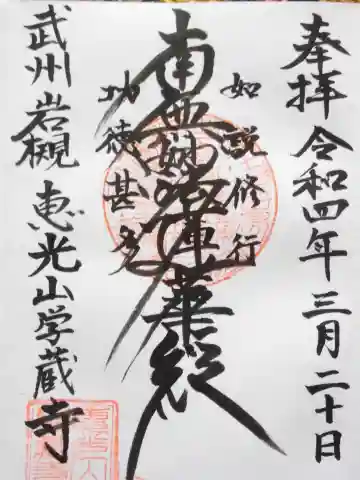 奉拝 令和四年三月二十日
如説修行
南無妙法蓮華経
功徳甚多
武州岩槻 恵光山学蔵寺